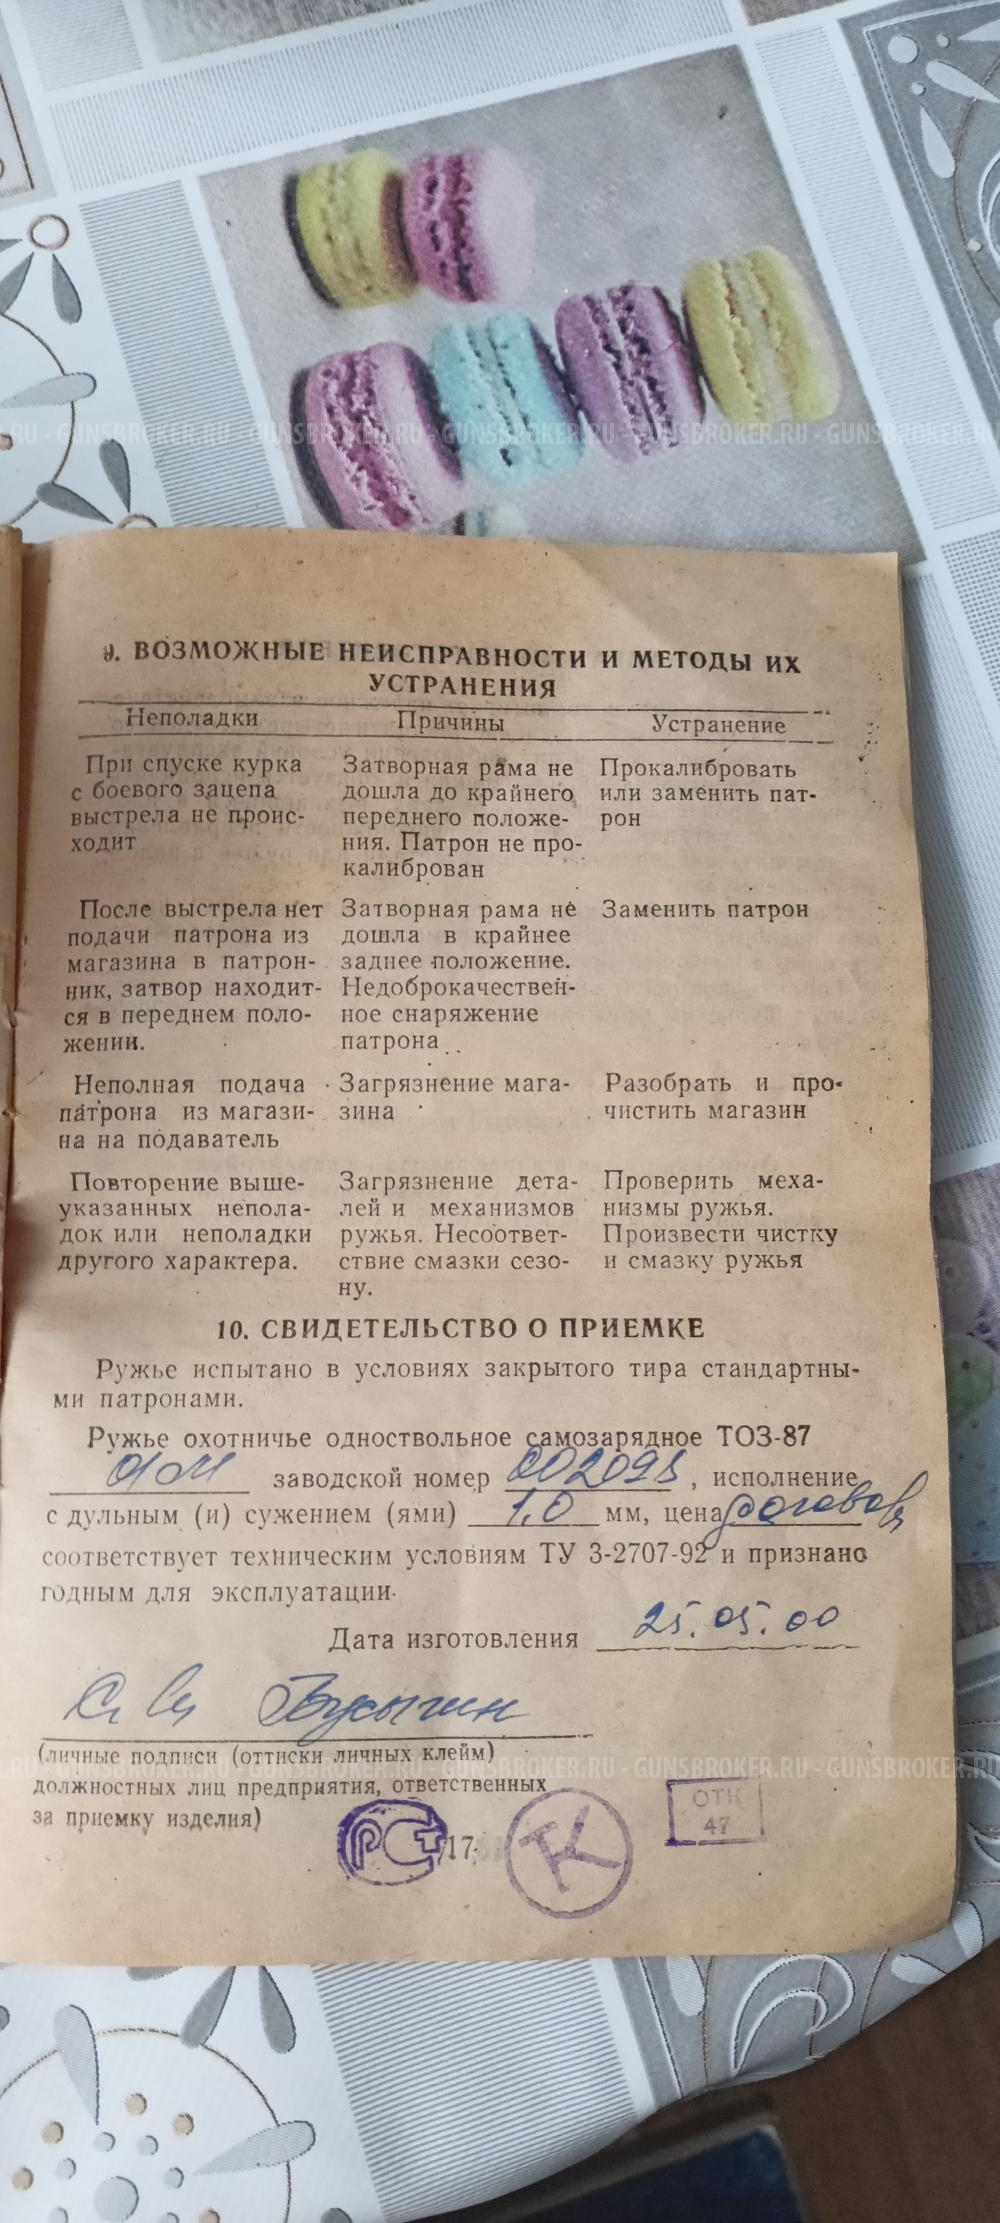 RU - GUNSBROKER.RU - GUNSBROKER.RU - GUNSBROKER.RU - GUNSBROKER.RU - GUNSBROKER.RU
9. ВОЗМОЖНЫЕ НЕИСПРАВНОСТИ И МЕТОДЫ ИХ
УСТРАНЕНИЯ
Неполадки Причины Устранение
При спуске курка
с боевого зацепа
выстрела не проис-
ходит
Затворная рама не
дошла до крайнего
переднего положе-
ния. Патрон не про-
калиброван
Прокалибровать
или заменить пат-
рон
После выстрела нет
подачи патрона из
магазина в патрон-
ник, затвор находит-
ся в переднем поло-
жении.
Затворная рама не
дошла в крайнее
заднее положение.
Недоброкачествен-
ное снаряжение
патрона
Заменить патрон
Неполная подача
патрона из магази-
на на подаватель
Загрязнение мага-
зина
Разобрать и про-
чистить магазин
Повторение выше-
указанных непола-
док или неполадки
другого характера.
Загрязнение дета-
лей и механизмов
ружья. Несоответ-
ствие смазки сезо-
ну.
Проверить меха-
низмы ружья.
Произвести чистку
и смазку ружья
10. СВИДЕТЕЛЬСТВО О ПРИЕМКЕ
Ружье испытано в условиях закрытого тира стандартны-
ми патронами.
Ружье охотничье одноствольное самозарядное ТОЗ-87
заводской номер , исполнение
с дульным (и) сужением (ями) 1,0 мм, цена договорн
соответствует техническим условиям ТУ 3-2707-92 и признано
годным для эксплуатации.
Дата изготовления 25.05.00
(личные подписи (оттиски личных клейм)
должностных лиц предприятия, ответственных
за приемку изделия)
GUNSBROKER.RU - GUNSBROKER.RU - GUNSBROKER.RU
РСТ
17
ТК
ОТК
47